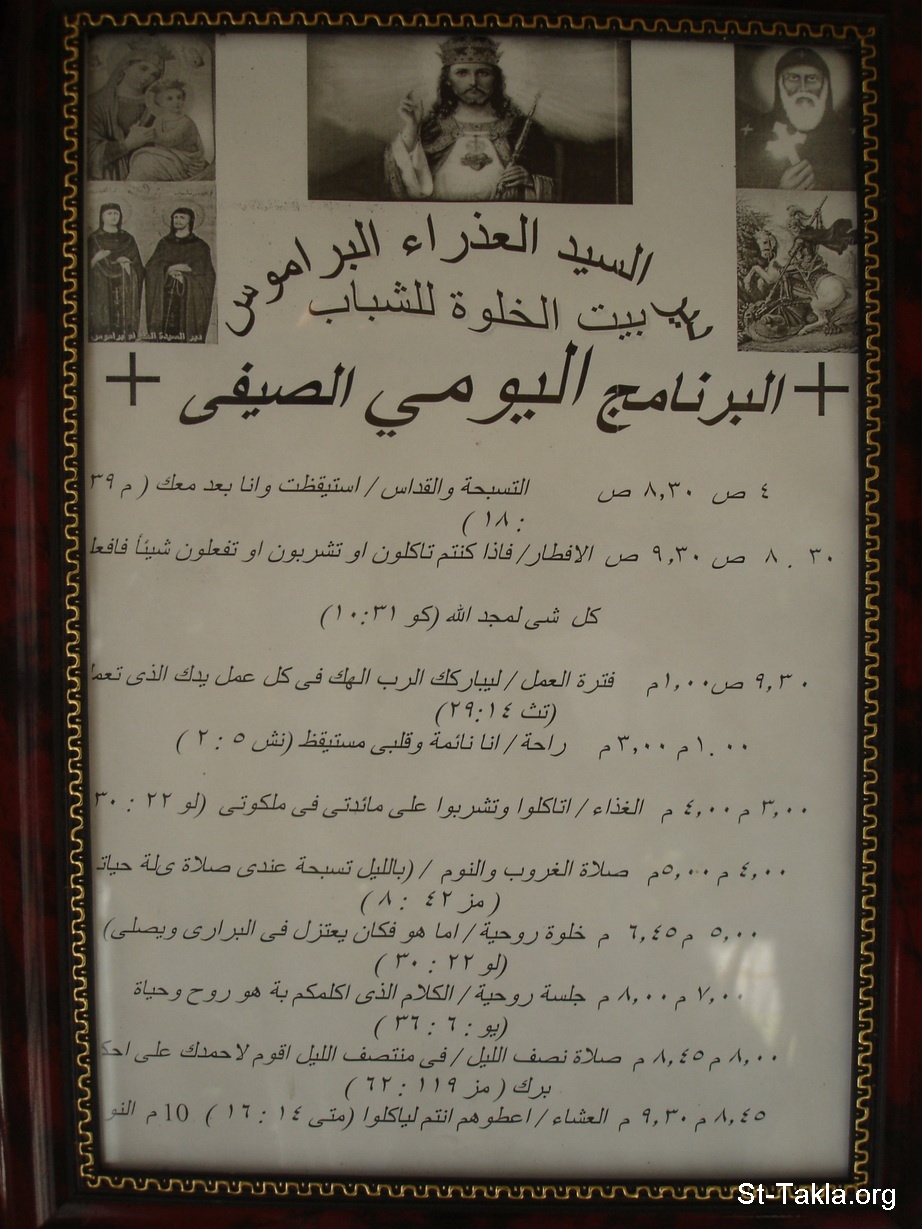 السيد العذراء البراموس
بيت الخلوة للشباب
دير السيدة العذراء براموس
+ البرنامج اليومي الصيفى +
٤ ص ٨,٣٠ ص التسبحة والقداس / استيقظت وانا بعد معك ( م ٣٩
: ١٨ )
٨ . ٣٠ ص ٩,٣٠ ص الافطار/ فاذا كنتم تاكلون او تشربون او تفعلون شيئأ فافعل
كل شى لمجد الله (كو ١٠:٣١)
٩,٣٠ ص ١,٠٠م فترة العمل / ليباركك الرب الهك فى كل عمل يدك الذى تعما
(تث ٢٩:١٤)
١,٠٠ م ٣,٠٠ م راحة / انا نائمة وقلبى مستيقظ (نش ٥ : ٢ )
٣,٠٠ م ٤,٠٠ م الغذاء / اتاكلوا وتشربوا على مائدتى فى ملكوتى (لو ٢٢ : ٣٠
٤,٠٠ م ٥,٠٠م صلاة الغروب والنوم / (بالليل تسبحة عندى صلاة ىلة حياتـ
( مز ٤٢ : ٨ )
٥,٠٠ م ٦,٤٥ م خلوة روحية / اما هو فكان يعتزل فى البرارى ويصلى)
(لو ٢٢ : ٣٠ )
٧,٠٠ م ٨,٠٠ م جلسة روحية / الكلام الذى اكلمكم بة هو روح وحياة
(يو : ٦ : ٣٦ )
٨,٠٠ م ٨,٤٥ م صلاة نصف الليل / فى منتصف الليل اقوم لاحمدك على احك
برك ( مز ١١٩ : ٦٢ )
٨,٤٥ م ٩,٣٠ م العشاء / اعطوهم انتم لياكلوا (متى ١٤ : ١٦ ) 10 م النو
St-Takla.org